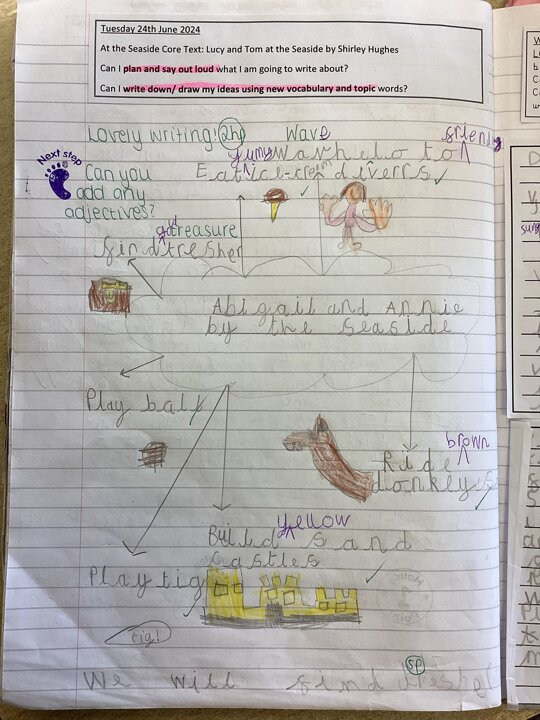 Tuesday 24th June 2024
At the Seaside Core Text: Lucy and Tom at the Seaside by Shirley Hughes
Can I plan and say out loud what I am going to write about?
Can I write down/ draw my ideas using new vocabulary and topic words?
Lovely writing! 2hp
Next step
Can you
add any
adjectives?
Wave friendly
Wavhelo to
yumy
Eat ice-cream diverrs
gold treasure
find tresher
Abigail and Annie
by the seaside
Play ball
brown
Ride
donkeys
yellow
Build sand
castles
Play tig
tig!
sp
We will find